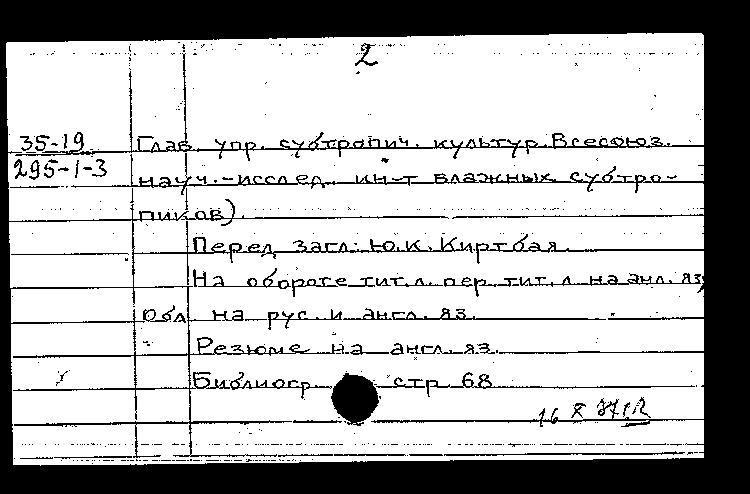 2
35-19
295-1-3
Глав. упр. субтропич. культур. Всесоюз.
науч.-исслед. ин-т влажных субтро-
пиков).
Перед загл.: Ю.К. Киртбая.
На обороте тит. л. пер. тит. л. на англ. яз.
Обл. на рус. и англ. яз.
Резюме на англ. яз.
Библиогр. стр 68
16 X